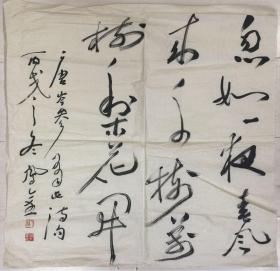 忽如一夜春风
来千树萬
树梨花开
唐岑参诗句
丙戌之冬